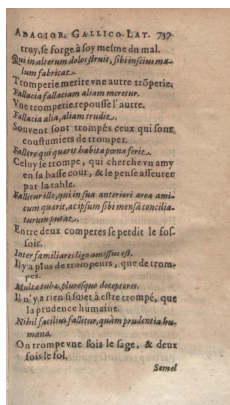 ADAGIOR. GALLICO-LAT. 737
truy, se forge à soy mesme du mal.
Qui in alterum dolos struit, sibi inscius ma-
lum fabricat.
Tromperie merite vne autre trõperie.
Fallacia fallaciam aliam meretur.
Vne tromperie repousse l'autre.
Fallacia alia, aliam trudit.
Souuent sont trompés ceux qui sont
coustumiers de tromper.
Fallere qui quærit, habita pœna ferit.
Celuy se trompe, qui cherche vn amy
en sa basse cour, & le pense asseurer
par la table.
Fallitur ille, qui in sua anteriori area ami-
cum quærit, ac ipsum sibi mensâ concilia-
turum putat.
Entre deux comperes se perdit le fos-
soir.
Inter familiares ligo amissus est.
Il y a plus de trompeurs, que de trom-
pes.
Multæ tubæ, pluresque deceptores.
Il n'y a rien si suiet à estre trompé, que
la prudence humaine.
Nihil facilius fallitur, quàm prudentia hu-
mana.
On trompe vne fois le sage, & deux
fois le fol.
Semel